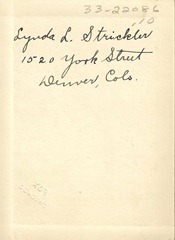 33-22086
,10
Lynda L. Strickler
1520 York Street
Denver, Colo.